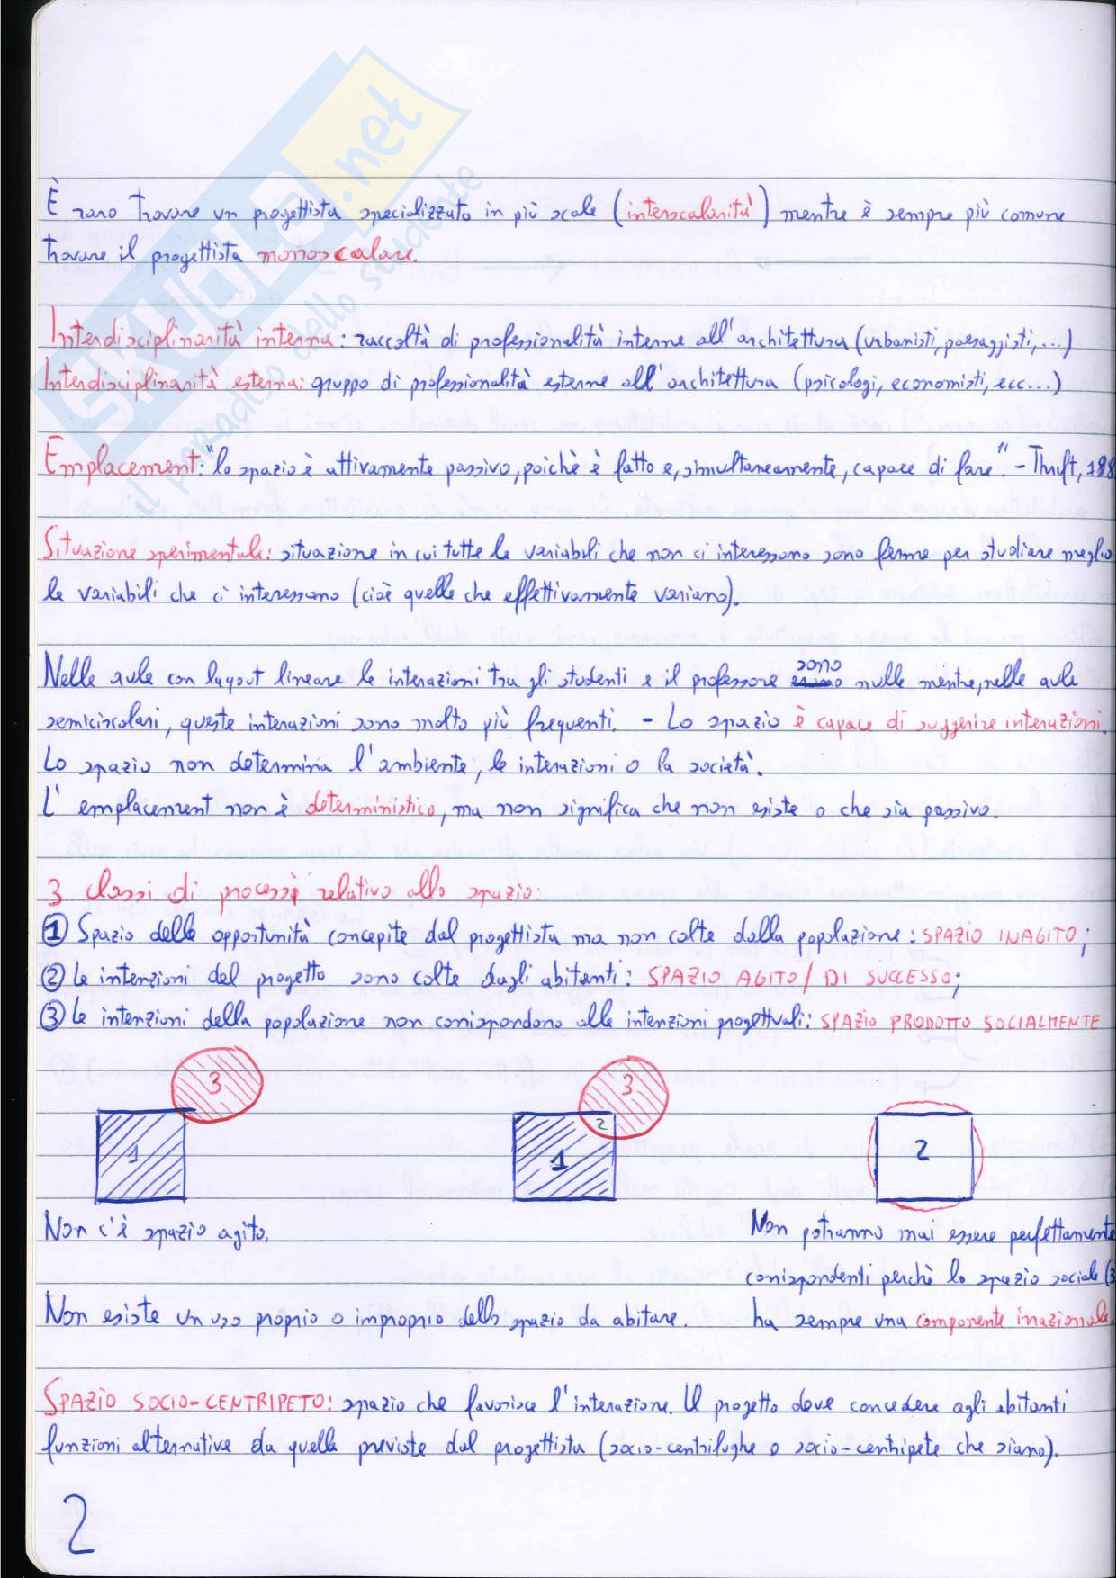 SKUOLA.net
il paradiso dello studente
È raro trovare un progettista specializzato in più scale (interscalarità) mentre è sempre più comune
trovare il progettista monoscalare.
Interdisciplinarità interna: raccolta di professionalità interne all'architettura (urbanisti, paesaggisti,...)
Interdisciplinarità esterna: gruppo di professionalità esterne all'architettura (psicologi, economisti, ecc...)
Emplacement: "lo spazio è attivamente passivo, poichè è fatto e, simultaneamente, capace di fare" - Thrift,
Situazione sperimentale: situazione in cui tutte le variabili che non ci interessano sono ferme per studiare meglio
le variabili che ci interessano (cioè quelle che effettivamente variano).
Nelle aule con layout lineare le interazioni tra gli studenti e il professore sono nulle mentre, nelle aule
semicircolari, queste interazioni sono molto più frequenti. - Lo spazio è capace di suggerire interazioni.
Lo spazio non determina l'ambiente, le interazioni o la società.
L'emplacement non è deterministico, ma non significa che non esiste o che sia passivo.
3 classi di processi relativo allo spazio:
① Spazio delle opportunità concepite dal progettista ma non colte dalla popolazione: SPAZIO INAGITO;
② Le intenzioni del progetto sono colte dagli abitanti: SPAZIO AGITO/DI SUCCESSO;
③ Le intenzioni della popolazione non corrispondono alle intenzioni progettuali: SPAZIO PRODOTTO SOCIALMENTE
3
1
3
2
1
2
Non c'è spazio agito.
Non potranno mai essere perfettamente
corrispondenti perchè lo spazio sociale (3
ha sempre una componente irrazionale
Non esiste un uso proprio o improprio dello spazio da abitare.
SPAZIO SOCIO-CENTRIPETO: spazio che favorisce l'interazione. Il progetto deve concedere agli abitanti
funzioni alternative da quelle previste dal progettista (socio-centrifughe o socio-centripete che siano).
2